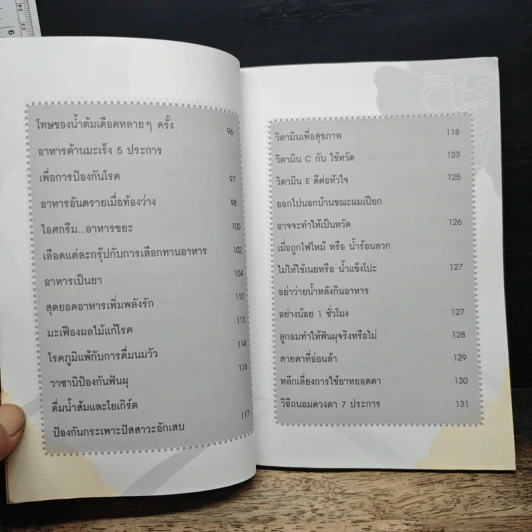 โทษของน้ำต้มเดือดหลายๆ ครั้ง 96
อาหารต้านมะเร็ง 5 ประการ
เพื่อการป้องกันโรค 97
อาหารอันตรายเมื่อท้องว่าง 98
ไอศกรีม...อาหารขยะ 100
เลือดแต่ละกรุ๊ปกับการเลือกทานอาหาร 102
อาหารเป็นยา 104
สุดยอดอาหารเพิ่มพลังรัก 110
มะเฟืองผลไม้แก้โรค 113
โรคภูมิแพ้กับการดื่มนมวัว 114
วาซาบิป้องกันฟันผุ 116
ดื่มน้ำส้มและโยเกิร์ต
ป้องกันกระเพาะปัสสาวะอักเสบ 117
วิตามินเพื่อสุขภาพ 118
วิตามิน C กับ ไข้หวัด 123
วิตามิน E ดีต่อหัวใจ 125
ออกไปนอกบ้านขณะผมเปียก
อาจจะทำให้เป็นหวัด 126
เมื่อถูกไฟไหม้ หรือ น้ำร้อนลวก
ไม่ให้ใช้เนยหรือ น้ำแข็งโปะ 127
อย่าว่ายน้ำหลังกินอาหาร
อย่างน้อย 1 ชั่วโมง 127
ลูกอมทำให้ฟันผุจริงหรือไม่ 128
สายตาที่อ่อนล้า 129
หลีกเลี่ยงการใช้ยาหยอดตา 130
วิธีถนอมดวงตา 7 ประการ 131